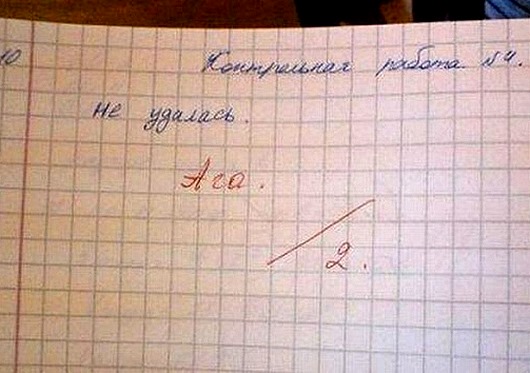 10
Контрольная работа №4.
Не удалась.
Ага.
2.